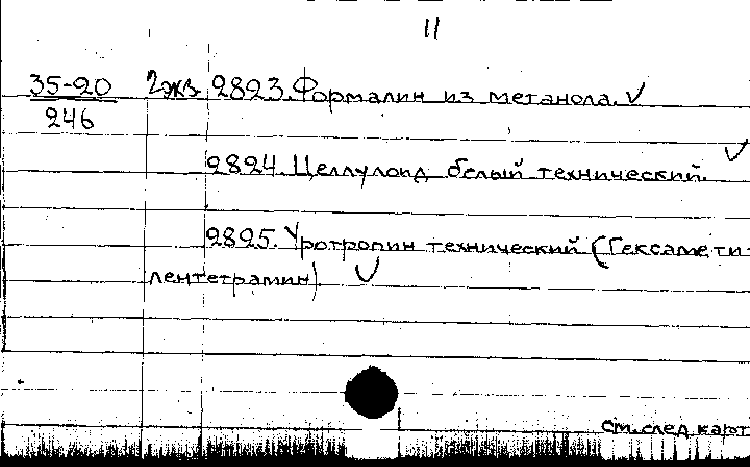 11
35-20 2экз. 2823. Формалин из метанола. ✓
246
2824. Целлулоид белый технический. ✓
2825. Уротропин технический (Гексамети-
лентетрамин). ✓
См. след. карт